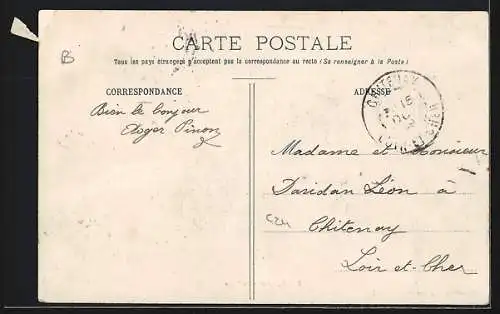 B
CARTE POSTALE
Tous les pays étrangers n'acceptent pas la correspondance au recto (Se renseigner à la Poste)
CORRESPONDANCE
ADRESSE
CHITENAY
15
LOIR-ET-CHER
Bien le bonjour
Asger Pinon
Madame et Monsieur
Daridan Léon à
Chitenay
Loir et-Cher
C24